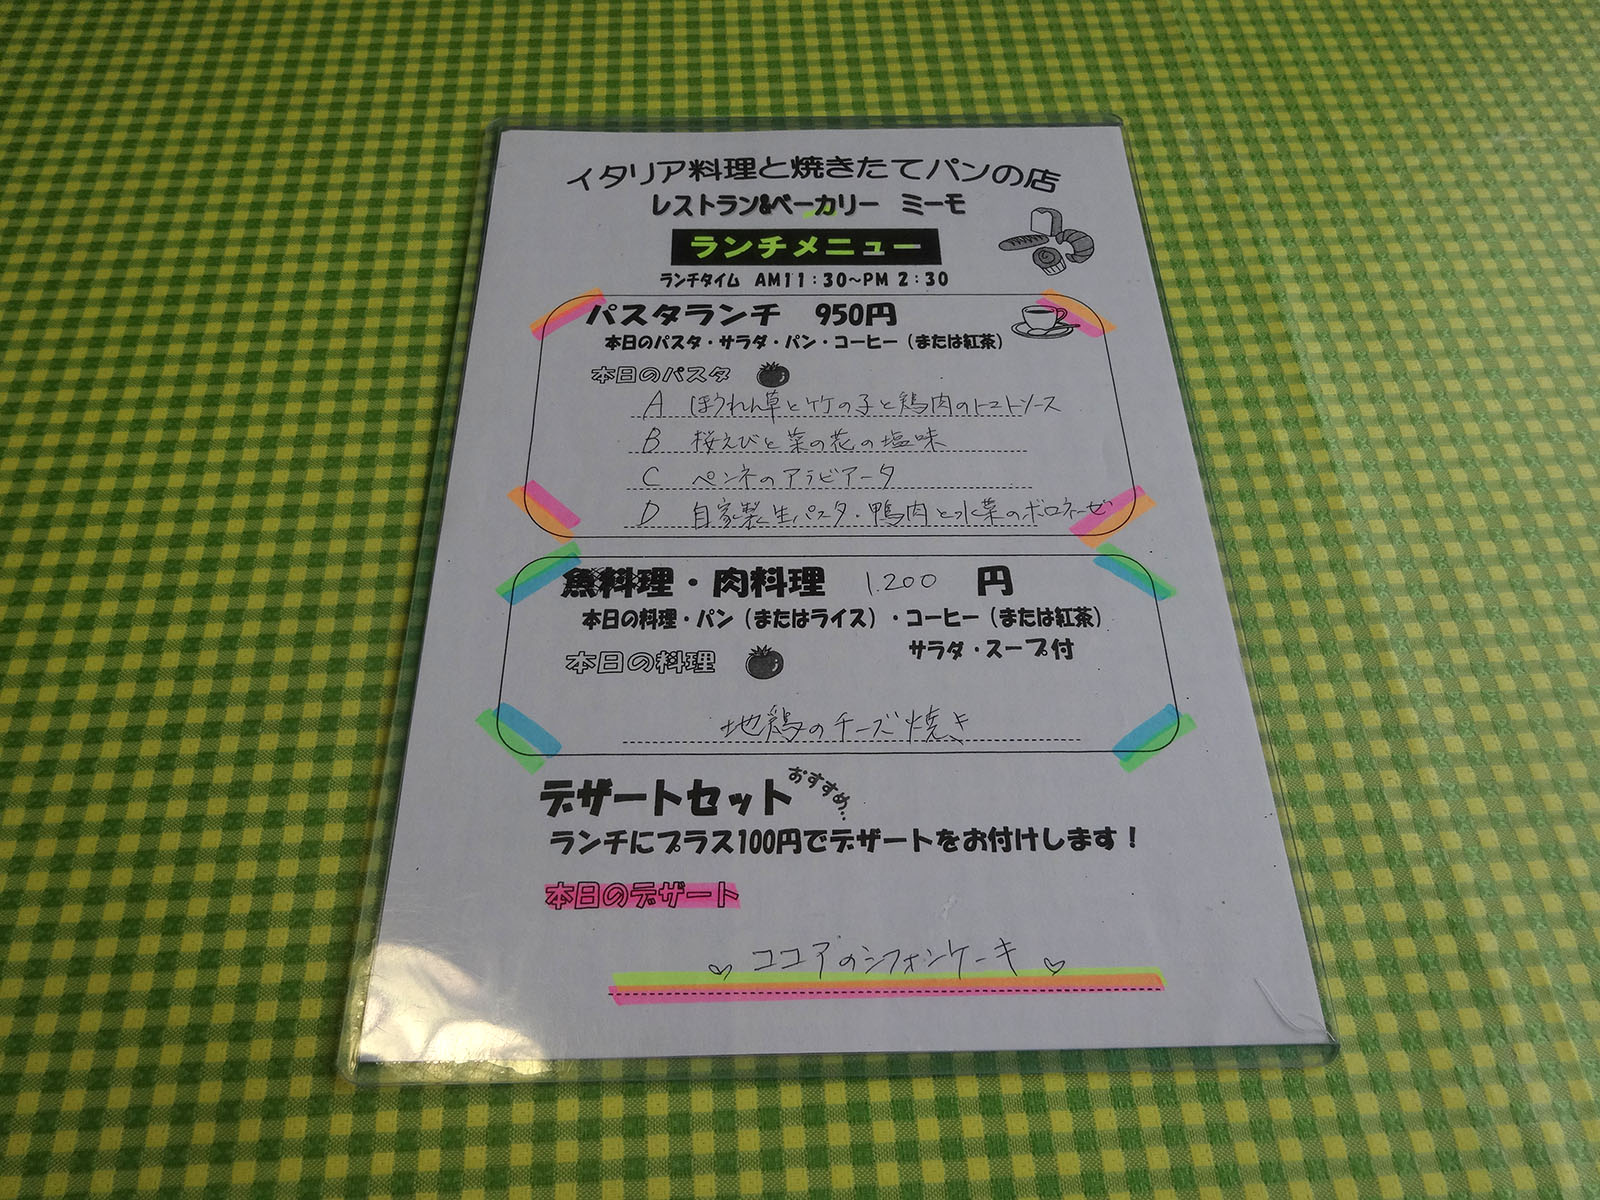 イタリア料理と焼きたてパンの店
レストラン&ベーカリー ミーモ
ランチメニュー
ランチタイム AM11:30～PM 2:30
パスタランチ 950円
本日のパスタ・サラダ・パン・コーヒー（または紅茶）
本日のパスタ
A ほうれん草と竹の子と鶏肉のトマトソース
B 桜えびと菜の花の塩味
C ペンネのアラビアータ
D 自家製生パスタ・鴨肉と水菜のボロネーゼ
魚料理・肉料理 1.200 円
本日の料理・パン（またはライス）・コーヒー（または紅茶）
サラダ・スープ付
本日の料理
地鶏のチーズ焼き
デザートセット おすすめ..
ランチにプラス100円でデザートをお付けします！
本日のデザート
ココアのシフォンケーキ